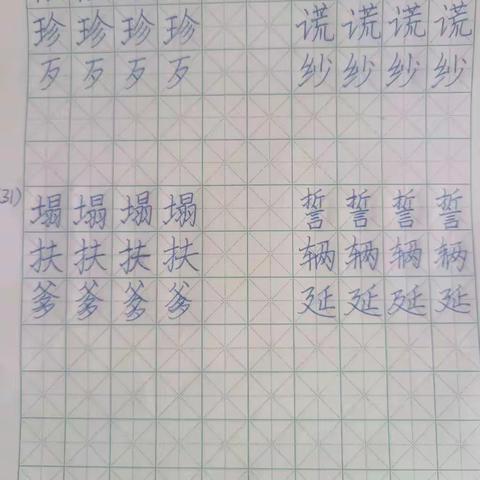 珍珍珍珍 谎谎谎谎
歹歹歹歹 纱纱纱纱
(31) 塌塌塌塌 誓誓誓誓
扶扶扶扶 辆辆辆辆
爹爹爹爹 延延延延